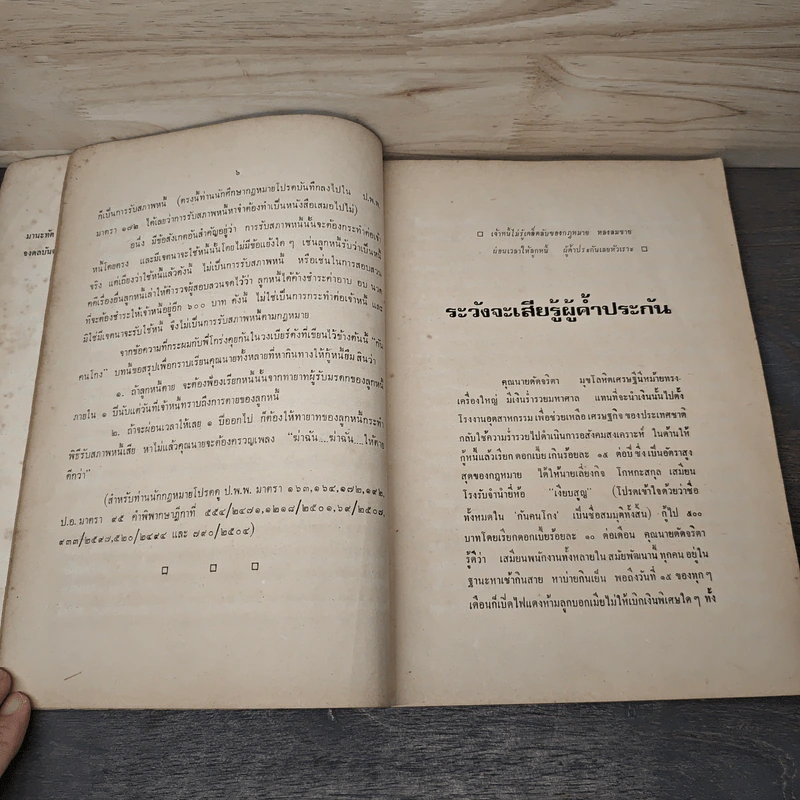 มานะทัต
องคลบันเ
๖
ก็เป็นการรับสภาพหนี้ (ตรงนี้ท่านนักศึกษากฎหมายโปรดบันทึกลงไปใน ป.พ.พ.
มาตรา ๑๗๒ ได้เลยว่าการรับสภาพหนี้หาจำต้องทำเป็นหนังสือเสมอไปไม่)
อนึ่ง มีข้อสังเกตอันสำคัญอยู่ว่า การรับสภาพหนี้นั้นจะต้องกระทำต่อเจ้า
หนี้โดยตรง และมีเจตนาจะใช้หนี้นั้นโดยไม่มีข้อแย้งใด ๆ เช่นลูกหนี้รับว่าเป็นหนี้
จริง แต่เถียงว่าใช้หนี้แล้วดังนี้ ไม่เป็นการรับสภาพหนี้ หรือเช่นในการสอบสวน
คดีเรื่องอื่นลูกหนี้เล่าให้ตำรวจผู้สอบสวนจดไว้ว่า ลูกหนี้ได้ค้างชำระค่าอาบ อบ นวด
ที่จะต้องชำระให้เจ้าหนี้อยู่อีก ๖๐๐ บาท ดังนี้ ไม่ใช่เป็นการกระทำต่อเจ้าหนี้ และ
มิใช่มีเจตนาจะรับใช้หนี้ จึงไม่เป็นการรับสภาพหนี้ตามกฎหมาย
จากข้อความที่กระผมกับพี่โกร่งคุยกันในวงเบียร์ดังที่เขียนไว้ข้างต้นนี้ "กัน
คนโกง" บทนี้ขอสรุปเพื่อกราบเรียนคุณนายทั้งหลายที่หากินทางให้กู้หนี้ยืม สินว่า
๑. ถ้าลูกหนี้ตาย จะต้องฟ้องเรียกหนี้นั้นจากทายาทผู้รับมรดกของลูกหนี้
ภายใน ๑ ปีนับแต่วันที่เจ้าหนี้ทราบถึงการตายของลูกหนี้
๒. ถ้าจะผ่อนเวลาให้เลย ๑ ปีออกไป ก็ต้องให้ทายาทของลูกหนี้กระทำ
พิธีรับสภาพหนี้เสีย หาไม่แล้วคุณนายจะต้องครวญเพลง "ฆ่าฉัน....ฆ่าฉัน....ให้ตาย
ดีกว่า"
(สำหรับท่านนักกฎหมายโปรดดู ป.พ.พ. มาตรา ๑๖๓,๑๖๔,๑๗๒,๑๙๒,
ป.อ. มาตรา ๙๕ คำพิพากษาฎีกาที่ ๕๕๔/๒๔๗๑,๑๒๑๘/๒๕๐๑,๖๙/๒๕๐๗,
๙๓๓/๒๕๙๗,๕๒๐/๒๔๙๔ และ ๗๙๐/๒๕๐๔)
เจ้าหนี้ไม่รู้เคล็ดลับของกฎหมาย หลงลมชาย
ผ่อนเวลาให้ลูกหนี้ ผู้ค้ำประกันเลยหัวเราะ
ระวังจะเสียรู้ผู้ค้ำประกัน
คุณนายดัดจริตา มุขโลหิตเศรษฐีนีหม้ายทรง-
เครื่องใหญ่ มีเงินร่ำรวยมหาศาล แทนที่จะนำเงินนั้นไปตั้ง
โรงงานอุตสาหกรรม เพื่อช่วยเหลือ เศรษฐกิจ ของประเทศชาติ
กลับใช้ความร่ำรวยไปดำเนินการอสังคมสงเคราะห์ ในด้านให้
กู้หนี้แล้วเรียก ดอกเบี้ย เกินร้อยละ ๑๕ ต่อปี ซึ่งเป็นอัตราสูง
สุดของกฎหมาย ได้ให้นายเลี่ยงกิจ โกหกะสกุล เสมียน
โรงรับจำนำยี่ห้อ "เงียบสูญ" (โปรดเข้าใจด้วยว่าชื่อ
ทั้งหมดใน 'กันคนโกง' เป็นชื่อสมมุติทั้งสิ้น) กู้ไป ๕๐๐
บาทโดยเรียกดอกเบี้ยร้อยละ ๑๐ ต่อเดือน คุณนายดัดจริตา
รู้ดีว่า เสมียนพนักงานทั้งหลายใน สมัยพัฒนานี้ ทุกคน อยู่ใน
ฐานะหาเช้ากินสาย หาบ่ายกินเย็น พอถึงวันที่ ๑๕ ของทุก ๆ
เดือนก็เปิดไฟแดงห้ามลูกบอกเมียไม่ให้เบิกเงินพิเศษใด ๆ ทั้ง